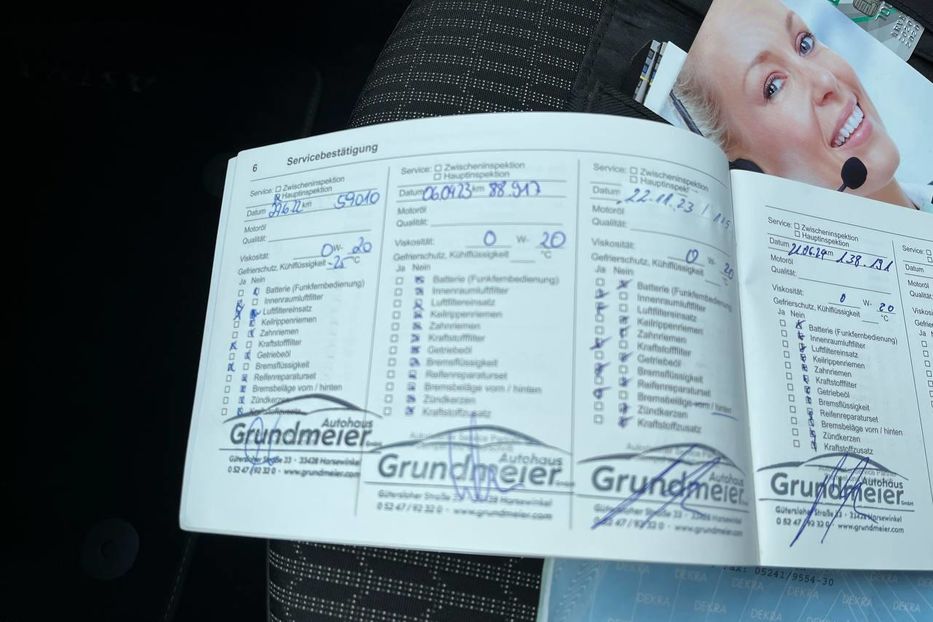 6 Servicebestätigung
Service: Zwischeninspektion
Hauptinspektion
Datum km 59010
Motoröl
Qualität:
Viskosität: 0 W- 20
Gefrierschutz, Kühlflüssigkeit -25 °C
Ja Nein
Batterie (Funkfernbedienung)
Innenraumluftfilter
Luftfiltereinsatz
Keilrippenriemen
Zahnriemen
Kraftstofffilter
Getriebeöl
Bremsflüssigkeit
Reifenreparaturset
Bremsbeläge vorn / hinten
Zündkerzen
Kraftstoffzusatz
Autohaus
Grundmeier GmbH
Gütersloher Straße 33 · 33428 Harsewinkel
0 52 47 / 92 32 0 · www.grundmeier.com
Service: Zwischeninspektion
Hauptinspektion
Datum 06.04.23 km 88.917
Motoröl
Qualität:
Viskosität: 0 W- 20
Gefrierschutz, Kühlflüssigkeit °C
Ja Nein
Batterie (Funkfernbedienung)
Innenraumluftfilter
Luftfiltereinsatz
Keilrippenriemen
Zahnriemen
Kraftstofffilter
Getriebeöl
Bremsflüssigkeit
Reifenreparaturset
Bremsbeläge vorn / hinten
Zündkerzen
Kraftstoffzusatz
Autohaus
Grundmeier GmbH
Gütersloher Straße 33 · 33428 Harsewinkel
0 52 47 / 92 32 0 · www.grundmeier.com
Service: Zwischeninspektion
Hauptinspekt
Datum 22.11.23
Motoröl
Qualität:
Viskosität: 0 W- 20
Gefrierschutz, Kühlflüssigkeit °C
Ja Nein
Batterie (Funkfernbedienung)
Innenraumluftfilter
Luftfiltereinsatz
Keilrippenriemen
Zahnriemen
Kraftstofffilter
Getriebeöl
Bremsflüssigkeit
Reifenreparaturset
Bremsbeläge vorn / hinten
Zündkerzen
Kraftstoffzusatz
Autohaus
Grundmeier GmbH
Gütersloher Straße 33 · 33428 Harsewinkel
52 47 / 92 32 0 · www.grundmeier.com
Service: Zwischeninspektion
Hauptinspektion
Datum 21.06.24 km 138.191
Motoröl
Qualität:
Viskosität: 0 W- 20
Gefrierschutz, Kühlflüssigkeit °C
Ja Nein
Batterie (Funkfernbedienung)
Innenraumluftfilter
Luftfiltereinsatz
Keilrippenriemen
Zahnriemen
Kraftstofffilter
Getriebeöl
Bremsflüssigkeit
Reifenreparaturset
Bremsbeläge vorn / hinten
Zündkerzen
Kraftstoffzusatz
Autohaus
Grundmeier GmbH
Gütersloher Straße 33 · 33428 Harsewinkel
0 52 47 / 92 32 0 · www.grundmeier.com
Service:
Datum
Motoröl
Qualität:
Viskosität:
Gefriersch
Ja Nein
05241/9554-30
DEKRA DEKRA DEKRA